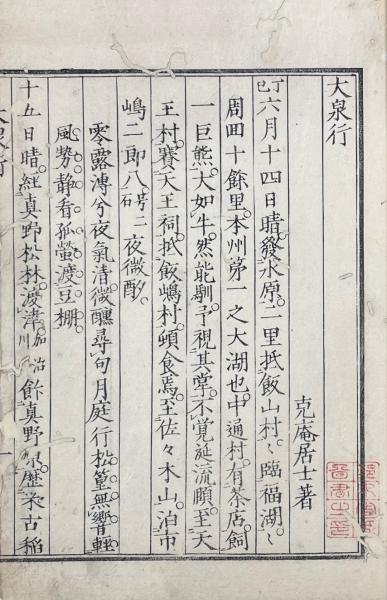 大泉行
克庵居士著
丁巳六月十四日晴。發水原。二里抵飯山村。〻臨福湖。〻
周囬十餘里。本州第一之大湖也。中通村。有茶店。飼
一巨熊。大如牛。然能馴。予視其掌。不覚涎流頤。至天
王村。賽天王祠。抵飯嶋村。頓食焉。至佐々木山。泊市
嶋二郎八。号石二夜微酌。
零露漙兮夜氣清。微醺尋句月庭行。松篁無響輕
風勢。静看孤螢渡豆棚。
十五日晴。経真野松林。渡津。加治川 真野原。歴 古稲